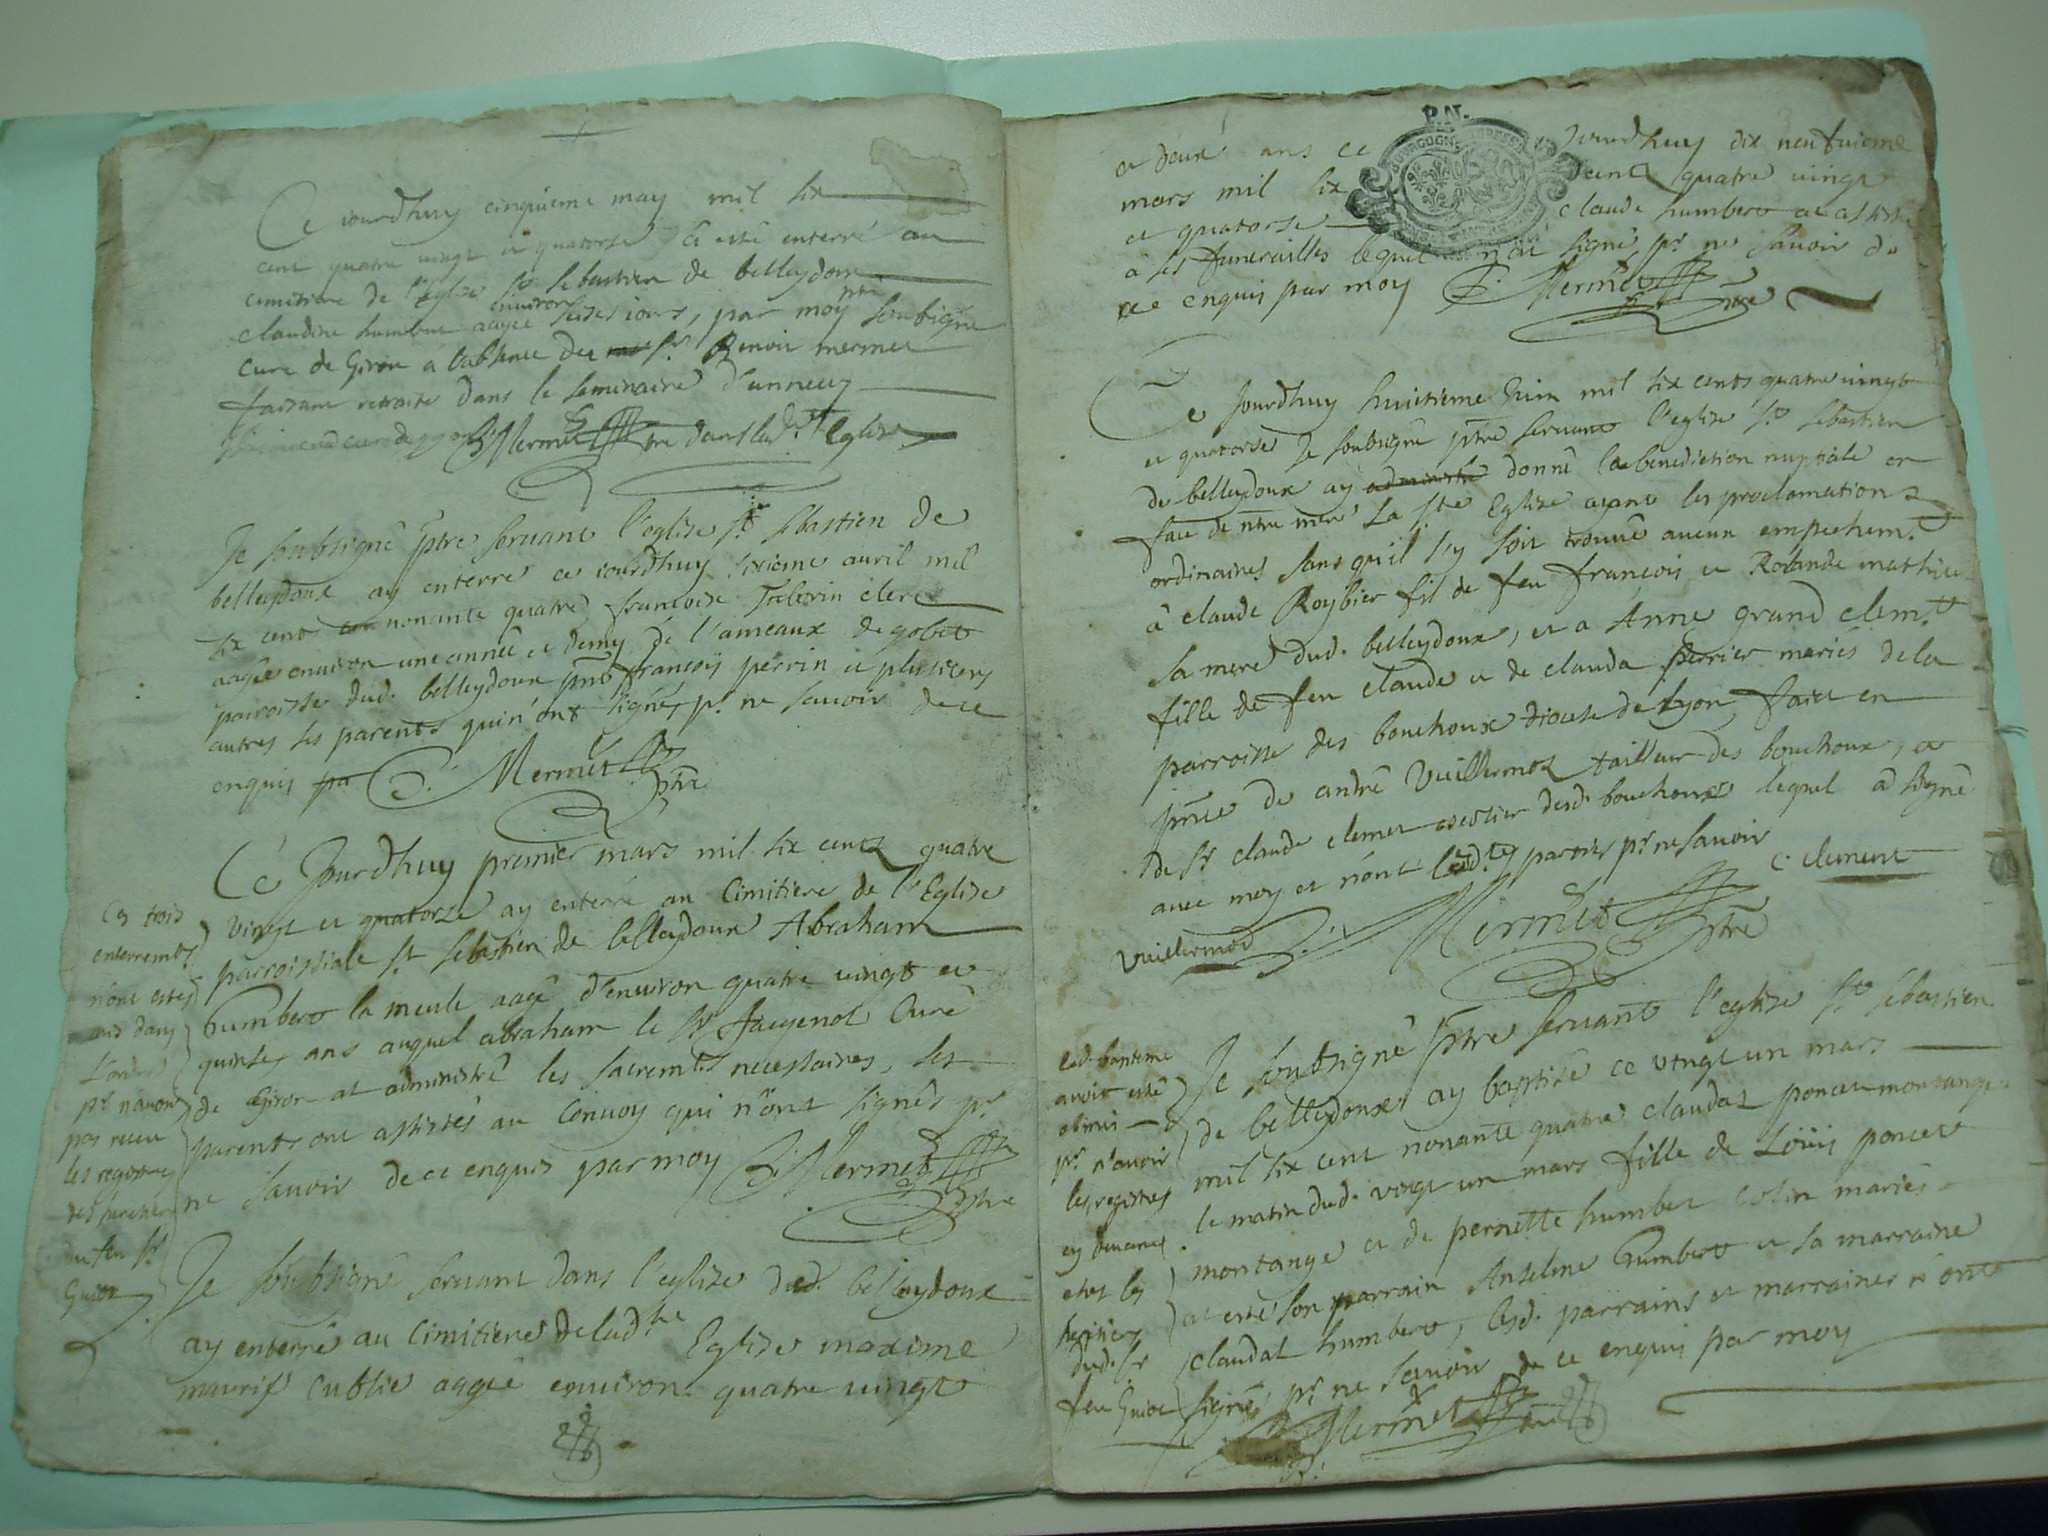 Ce iourdhuy cinquieme may mil six
cent quatre vingt et quatorse a esté enterré au
cimitiere de l'Eglise St sebastien de belleydoux
claudine humbert aagée environ seises iours, par moy ptre soubsigné
curé de Giron a l'absence du sr Benoit mermet
faisant retraite dans le seminaire d'annecy
Mermet ptre dans lad. Eglise
Je soubsigné ptre servant l'eglise st sebastien de
belleydoux ay enterré ce iourdhuy sixieme avril mil
six cent nonante quatre francoise
aagée environ une année et demy de l'ameaux de gobet
parroisse dud. belleydoux pnt francois perrin et plusieurs
autres ses parents qui n'ont signés pr ne savoir de ce
enquis Mermet ptre
Ce Jourdhuy premier mars mil six cents quatre
vingt et quatorze ay enterré au Cimitiere de l'Eglise
parroissiale st sebastien de belleydoux Abraham
humbert la meule aagé d'environ quatre vingt et
quinse ans auquel abraham le sr Curé
de Giron at administré les sacremts necessaires, ses
parents ont assistés au Convoy qui n'ont signés pr
ne savoir de ce enquis par moy Mermet ptre
Ces trois
enterremts
n'ont estés
mis dans
l'ordre
pr n'avoir
pas receu
les registres
des heritiers
du feu sr
Guiot
Je soubsigné servant dans l'eglise dud. belleydoux
ay enterré au Cimitiere de ladte Eglise maxime
aagée environ quatre vingt
P.N.
et deux ans ce Jourdhuy dix neufvieme
mars mil six cents quatre vingt
et quatorse claude humbert at assisté
a ses funerailles lequel n'at signé pr ne savoir de
ce enquis par moy Mermet ptre
Ce Jourdhuy huictieme Juin mil six cents quatre vingt
et quatorse Je soubsigné ptre servant l'eglise st sebastien
de belleydoux ay administré donné la benediction nuptiale en
face de ntre mere La ste Eglise ayant les proclamations
ordinaires sans qu'il s'y soit trouvé aucun empechemt
à claude Roybier fil de feu francois et Rolande mathieu
sa mere dud. belleydoux, et a Anne grand clemt
fille de feu claude et de clauda perrier mariés de la
parroisse des bouchoux diocese de lyon, faict en
pnce de andré Vuillermoz tailleur des bouchoux, et
de sr claude clement desd. bouchoux lequel â signé
avec moy et n'ont lesdtes parties pr ne savoir
C. clement
Vuillermoz Mermet ptre
Je soubsigné ptre servant l'eglise st sebastien
de belleydoux ay baptisé ce vingt un mars
mil six cent nonante quatre claudaz poncet montange
le matin dud. vingt un mars fille de Loüis poncet
montange et de pernette humbert colin mariés
at esté son parrain Anselme humbert et sa marraine
claudaz humbert, lesd. parrains et marraines n'ont
signé pr ne savoir de ce enquis par moy
Mermet ptre
led. bapteme
avoit esté
obmis
pr n'avoir
les registres
heritiers
dud. sr
feu Guiot